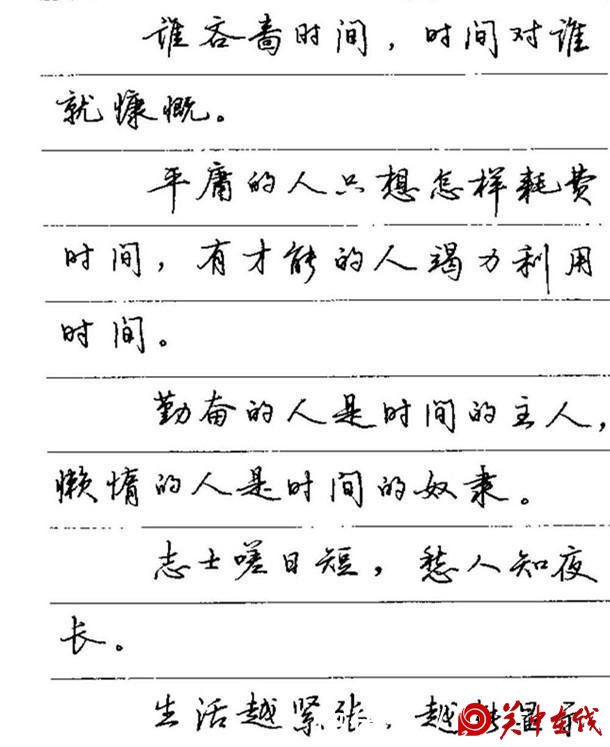 谁吝啬时间，时间对谁
就慷慨。
平庸的人只想怎样耗费
时间，有才能的人竭力利用
时间。
勤奋的人是时间的主人，
懒惰的人是时间的奴隶。
志士嗟日短，愁人知夜
长。
生活越紧张，越能显
关中在线